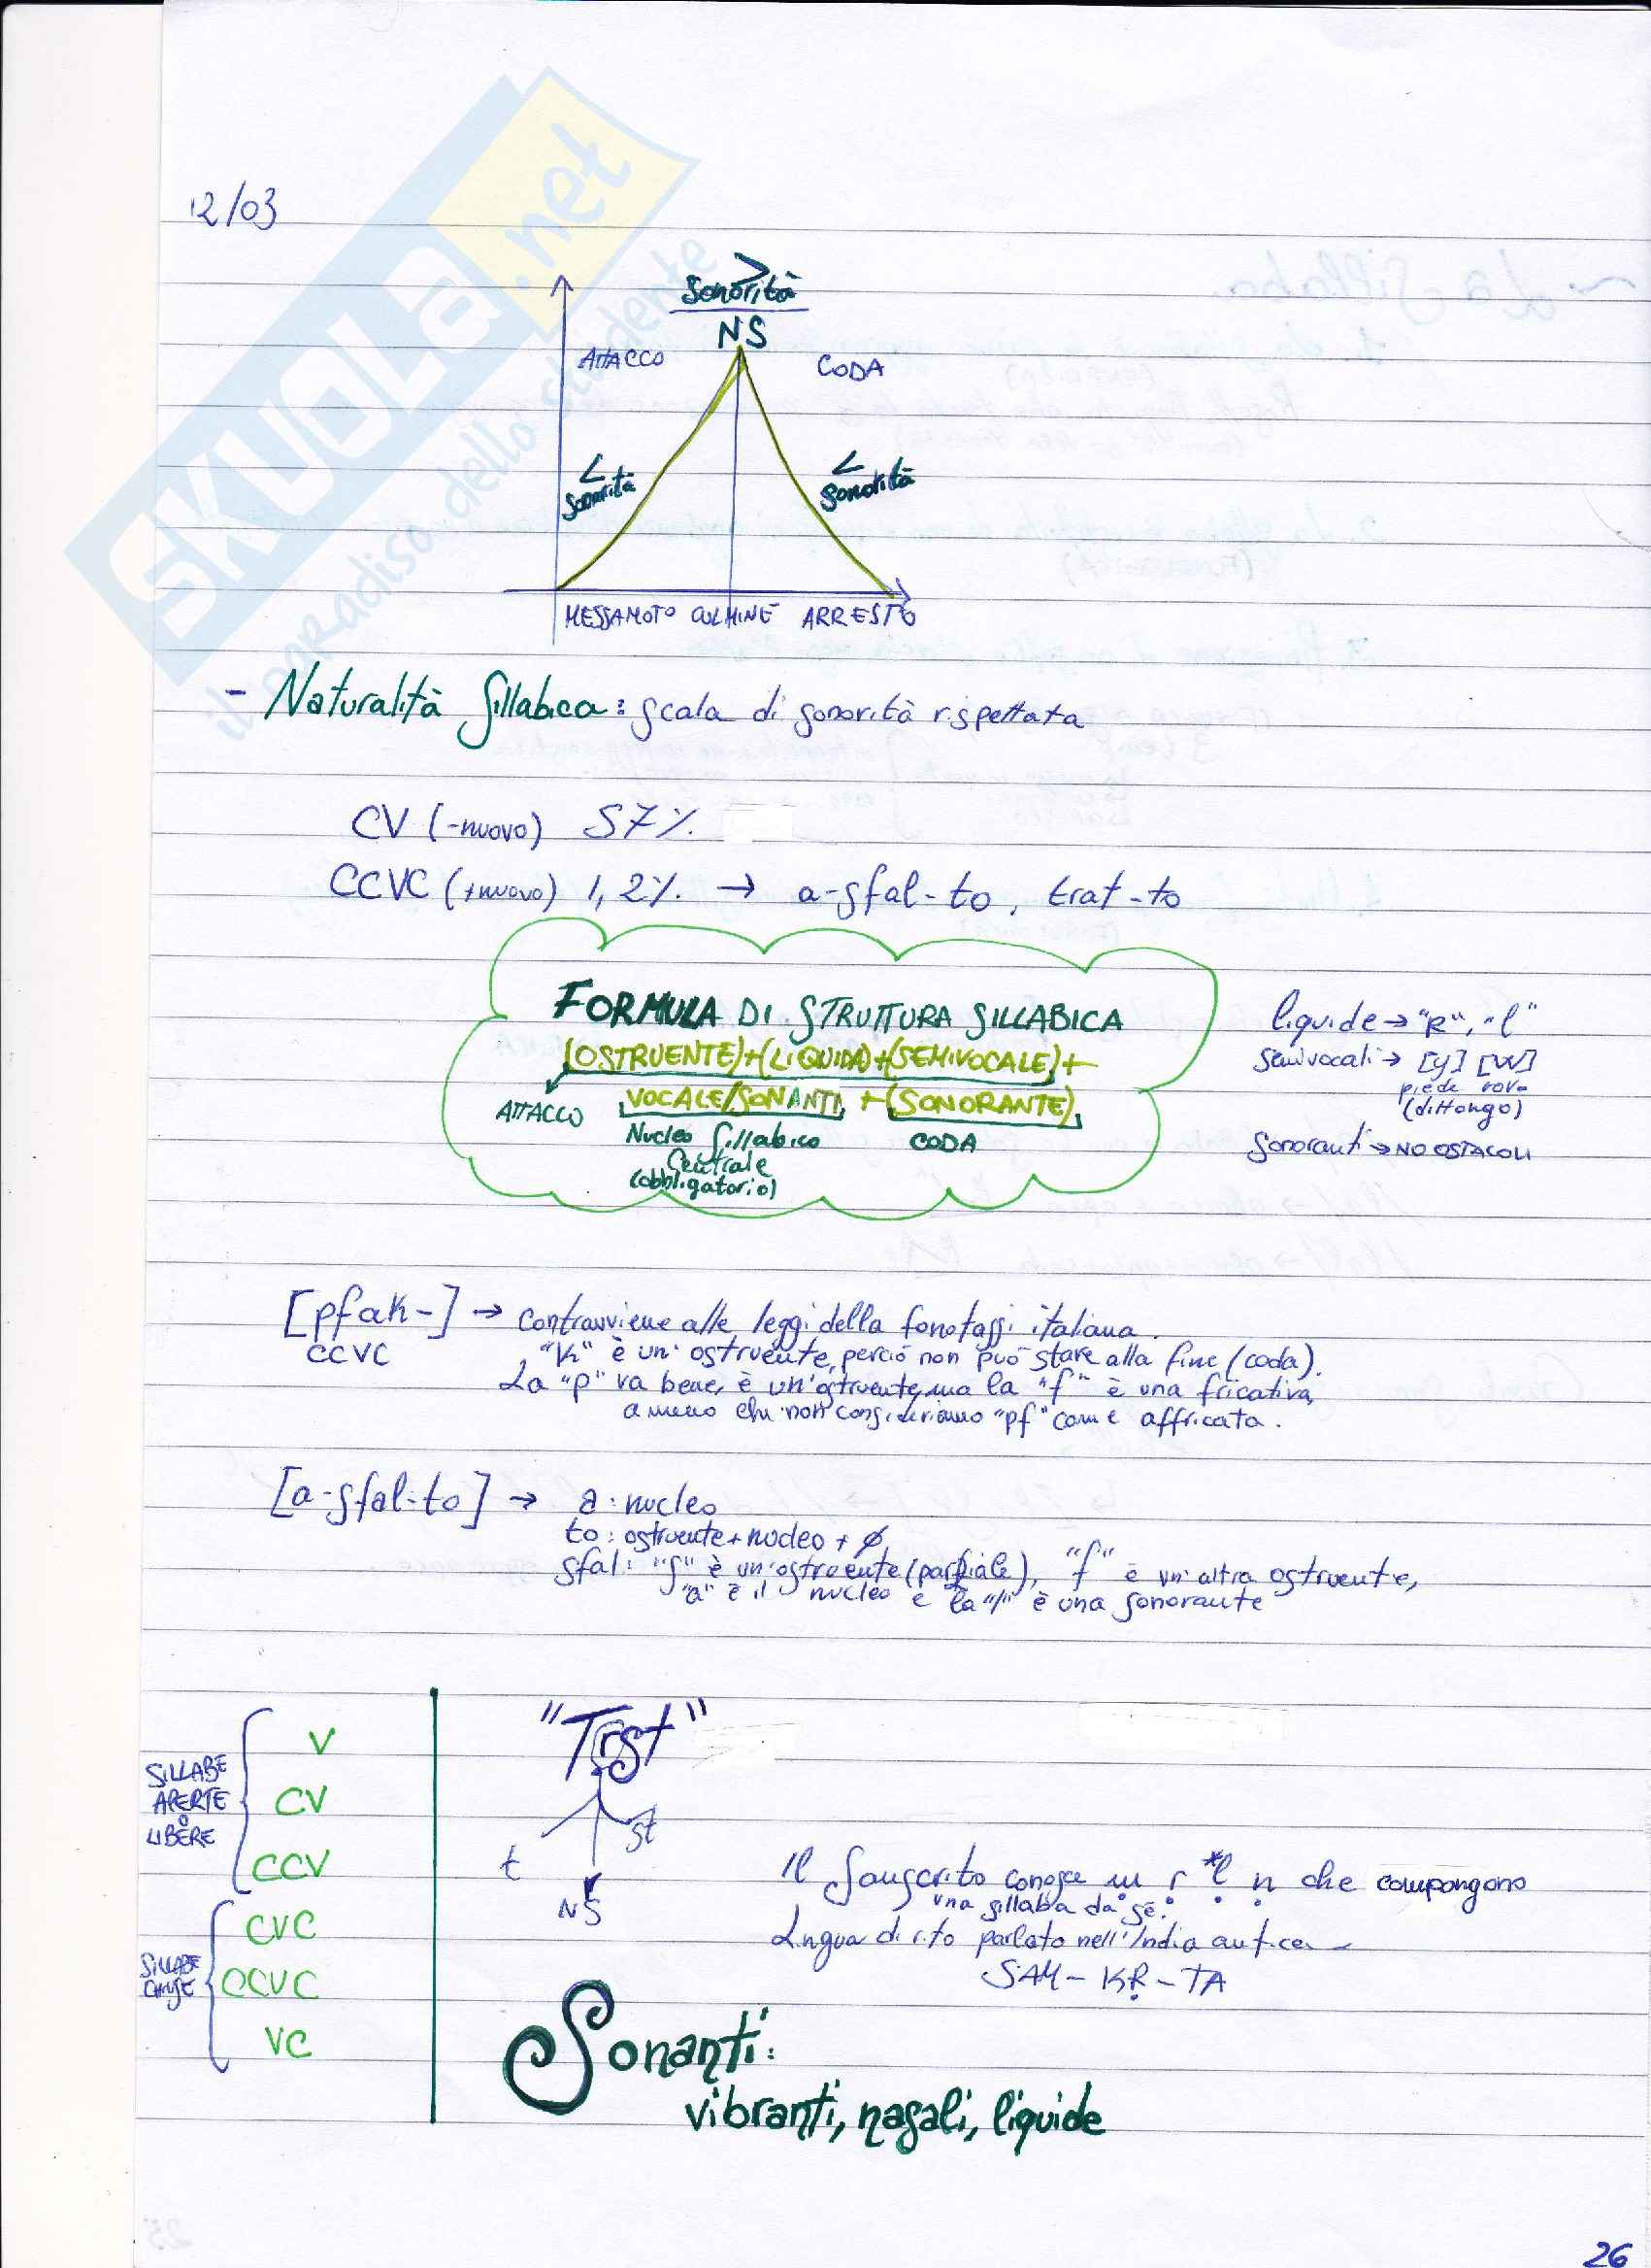 SKUOLA.net
il paradiso dello studente
12/03
>
Sonorità
NS
ATTACCO
CODA
<
sonorità
<
sonorità
MESSAMOTO CULMINE ARRESTO
- Naturalità Sillabica: scala di sonorità rispettata
CV (-nuovo) 57%
CCVC (+nuovo) 1,2% → a-sfal-to, trat-to
FORMULA DI STRUTTURA SILLABICA
(OSTRUENTE)+(LIQUIDA)+(SEMIVOCALE)+
VOCALE/SONANTI +(SONORANTE)
ATTACCO
Nucleo Sillabico
Centrale
(obbligatorio)
CODA
liquide → "R", "l"
Semivocali → [y] [w]
piede
(dittongo)
Sonoranti → NO OSTACOLI
[pfak-] → contravviene alle leggi della fonotassi italiana.
CCVC
"K" è un'ostruente, perciò non può stare alla fine (coda).
La "p" va bene, è un'ostruente, ma la "f" è una fricativa,
a meno che non consideriamo "pf" come affricata.
[a-sfal-to] → a: nucleo
to: ostruente + nucleo + ∅
sfal: "s" è un'ostruente (parziale), "f" è un'altra ostruente,
"a" è il nucleo e la "l" è una sonorante
SILLABE
APERTE
O
LIBERE
V
CV
CCV
SILLABE
CHIUSE
CVC
CCVC
VC
"Trst"
t
NS
st
Il Sanscrito conosce ṃ ṛ *ḷ ṇ che compongono
una sillaba da sé.
Lingua di rito parlato nell'India antica
SAM - KṚ - TA
Sonanti:
vibranti, nasali, liquide
26